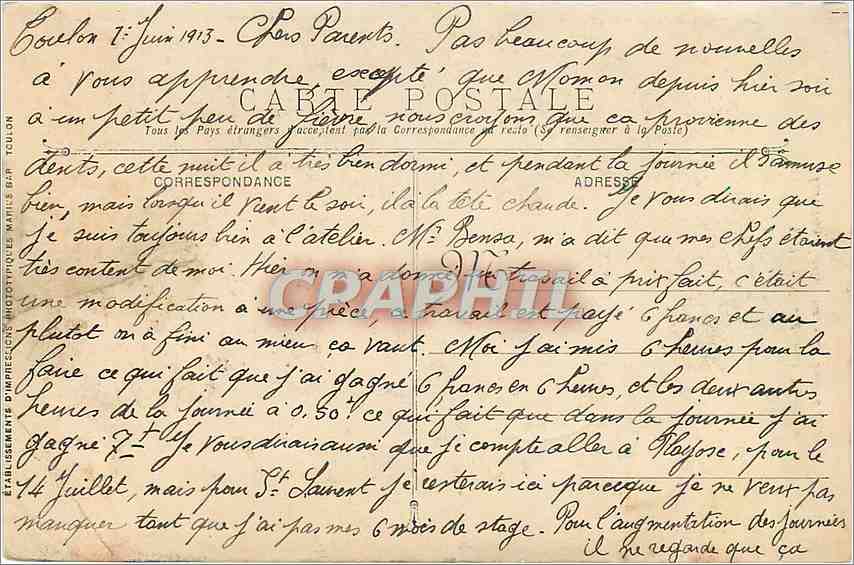 Toulon 7: Juin 1913 - Chers Parents. Pas beaucoup de nouvelles
à vous apprendre, excepté que Momon depuis hier soir
CARTE POSTALE
à un petit peu de fièvre, nous croyons que ca provienne des
Tous les Pays étrangers n'acceptent pas la Correspondance au recto (Se renseigner à la Poste)
dents, cette nuit il a très bien dormi, et pendant la journée il s'amuse
CORRESPONDANCE
ADRESSE
bien, mais lorsqu'il vient le soir, il à la tête chaude. Je vous dirais que
je suis toujours bien à l'atelier. Mr Bensa, m'a dit que mes Chefs étaient
très content de moi. Hier on m'a donné un travail à prix fait, c'était
M
CPAPHIL
une modification à une pièce, ce travail est payé 6 francs et au
plutot on à fini au mieux ça vaut. Moi j'ai mis 6 heures pour la
faire ce qui fait que j'ai gagné 6 francs en 6 heures, et les deux autres
heures de la journée à 0.50: ce qui fait que dans la journée j'ai
gagné 7f Je vous dirais aussi que je compte aller à Flayosc, pour le
14 Juillet, mais pour St Laurent je resterais ici parceque je ne veux pas
manquer tant que j'ai pas mes 6 mois de stage. Pour l'augmentation des journées
il ne regarde que ça
ÉTABLISSEMENTS D'IMPRESSIONS PHOTOTYPIQUES MARIUS BAR TOULON